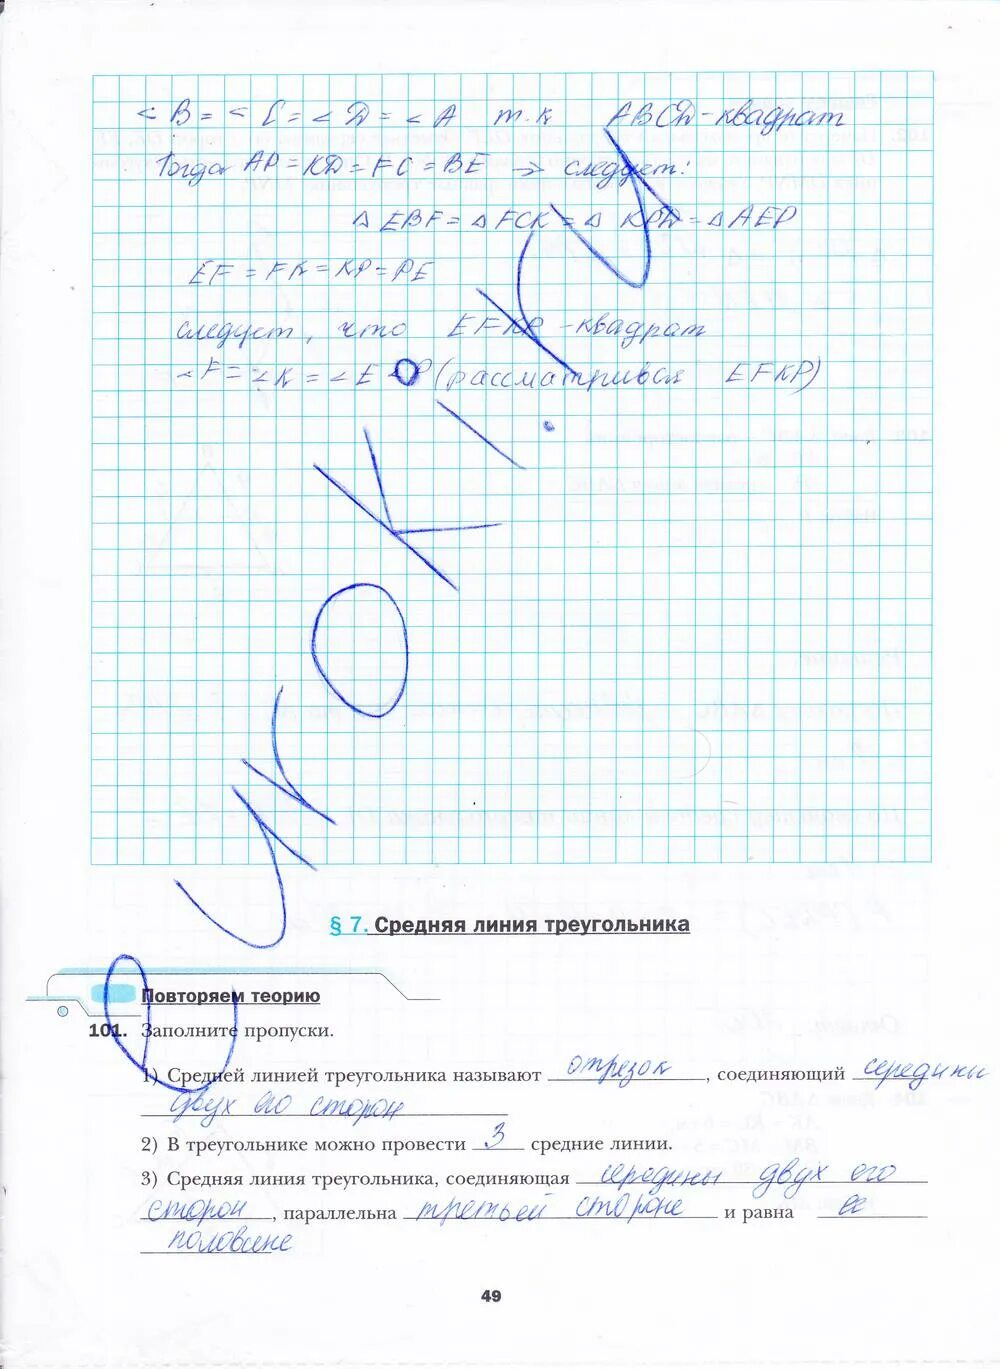 < B = < C = < D = < A т.к ABCD-квадрат
Тогда AP = KD = FC = BE → следует:
Δ EBF = Δ FCK = Δ KPD = Δ AEP
EF = FK = KP = PE
следует, что EFKP -квадрат
< F = < K = < E < P (рассматривая EFKP)
§ 7. Средняя линия треугольника
Повторяем теорию
101. Заполните пропуски.
1) Средней линией треугольника называют отрезок, соединяющий середины
двух его сторон
2) В треугольнике можно провести 3 средние линии.
3) Средняя линия треугольника, соединяющая середины двух его
сторон, параллельна третьей стороне и равна её
половине
49